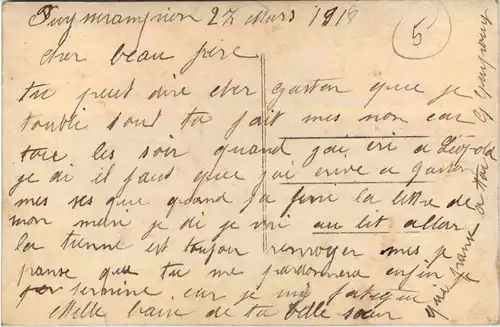 Puymerampion 27 Mars 1918
5
cher beau frère
tu peut dire cher gaston que je
toublie tout ta fait mes non car
tous les soir quand j'ai cri a Léopold
je di il faut que j'ai crive a gaston
mes ses que quand j'ai finie la lettre de
mon mari je di je vai au lit allor
la tienne est toujour renvoyer mes je
panse que tu me pardonnera enfin je
termine car je me fatigue
Mille baisé de ta belle sœur
que panse a toi